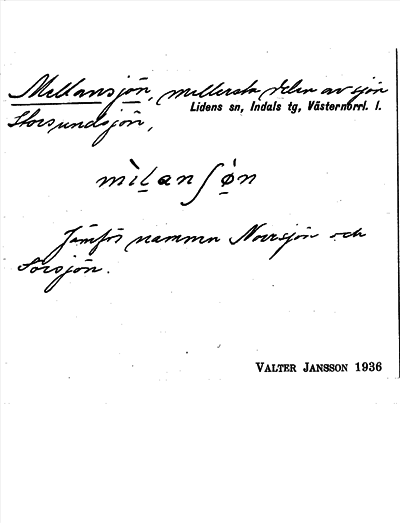 Mellansjön, mellersta delen av sjön
Lidens sn, Indals tg, Västernorrl. l.
Storsundsjön,
mìlanʃø̀n
Jämför namnen Norrsjön och
Sörsjön.
VALTER JANSSON 1936